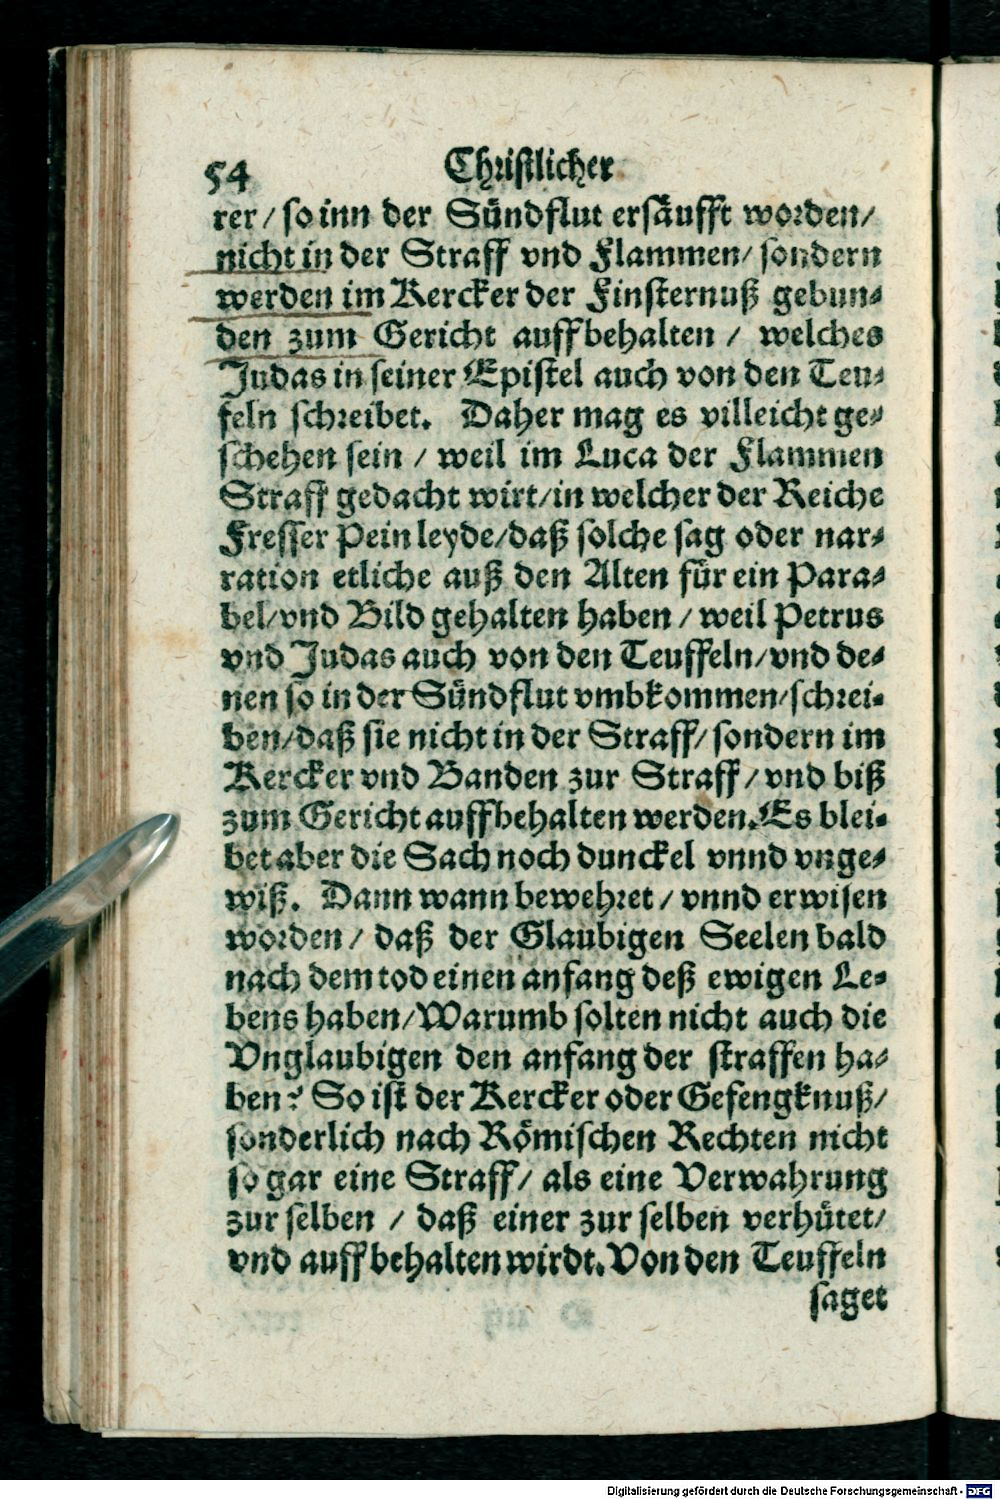 54 Christlicher
rer/ so inn der Sündflut ersäufft worden/
nicht in der Straff vnd Flammen/ sondern
werden im Kercker der Finsternuß gebun-
den zum Gericht auffbehalten / welches
Judas in seiner Epistel auch von den Teu-
feln schreibet. Daher mag es villeicht ge-
schehen sein / weil im Luca der Flammen
Straff gedacht wirt/ in welcher der Reiche
Fresser Pein leyde/ daß solche sag oder nar-
ration etliche auß den Alten für ein Para-
bel/ vnd Bild gehalten haben / weil Petrus
vnd Judas auch von den Teuffeln/ vnd de-
nen so in der Sündflut vmbkommen/ schrei-
ben/ daß sie nicht in der Straff/ sondern im
Kercker vnd Banden zur Straff/ vnd biß
zum Gericht auffbehalten werden. Es blei-
bet aber die Sach noch dunckel vnnd vnge-
wiß. Dann wann bewehret / vnnd erwisen
worden / daß der Glaubigen Seelen bald
nach dem tod einen anfang deß ewigen Le-
bens haben/ Warumb solten nicht auch die
Vnglaubigen den anfang der straffen ha-
ben? So ist der Kercker oder Gefengknuß/
sonderlich nach Römischen Rechten nicht
so gar eine Straff/ als eine Verwahrung
zur selben / daß einer zur selben verhütet/
vnd auffbehalten wirdt. Von den Teuffeln
saget
Digitalisierung gefördert durch die Deutsche Forschungsgemeinschaft - DFG